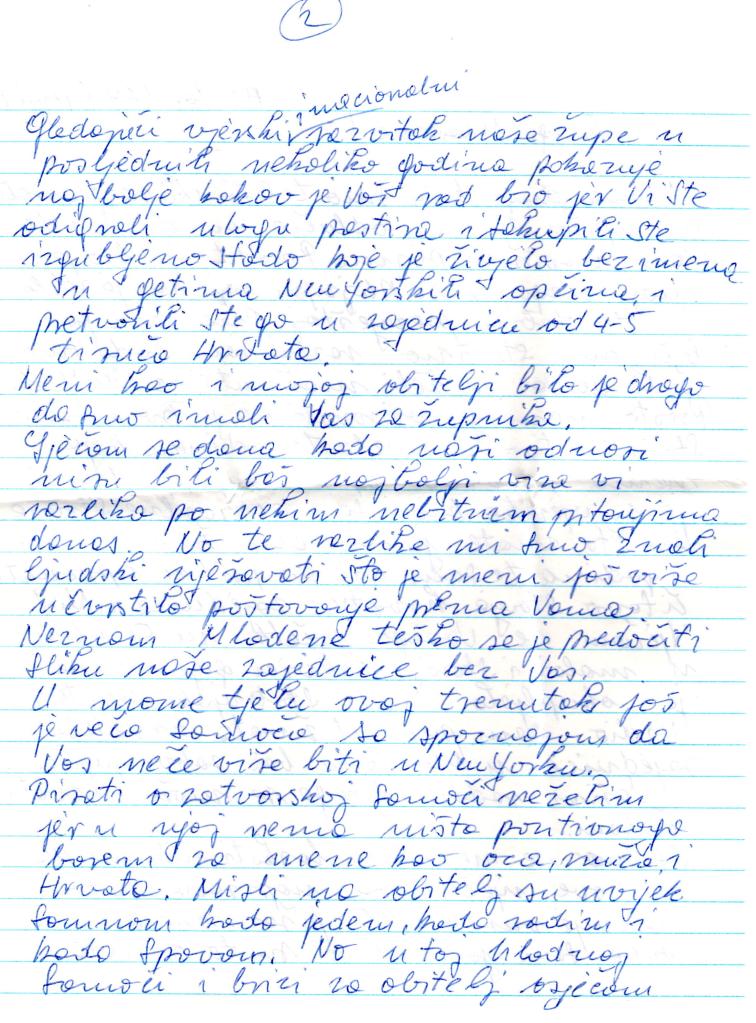 2
i nacionalni
Gledajući vjerski razvitak naše župe u
posljednih nekoliko godina pokazuje
najbolje kakov je Vaš rad bio jer Vi ste
odigrali ulogu pastira i sakupili ste
izgubljeno stado koje je živjelo bezimena
u getima Newyorških općina, i
pretvorili ste ga u zajednicu od 4-5
tisuća Hrvata.
Meni kao i mojoj obitelji bilo je drago
da smo imali Vas za župnika.
Sječam se dana kada naši odnosi
nisu bili baš najbolji viza vi
razlika po nekim nebitnim pitanjima
danas. No te razlike mi smo znali
ljudski riješavati što je meni još više
učvrstilo poštovanje prema Vama.
Neznam Mladene teško se je predočiti
sliku naše zajednice bez Vas.
U mome tjelu ovaj trenutak još
je veča samoča sa spoznajom da
Vas neče više biti u NewYorku.
Pisati o zatvorskoj samoči neželim
jer u njoj nema ništa pozitivnoga
barem za mene kao oca, muža, i
Hrvata. Misli na obitelj su uvijek
samnom kada jedem, kada radim i
kada spavam. No u toj hladnoj
samoči i brizi za obitelj osječam